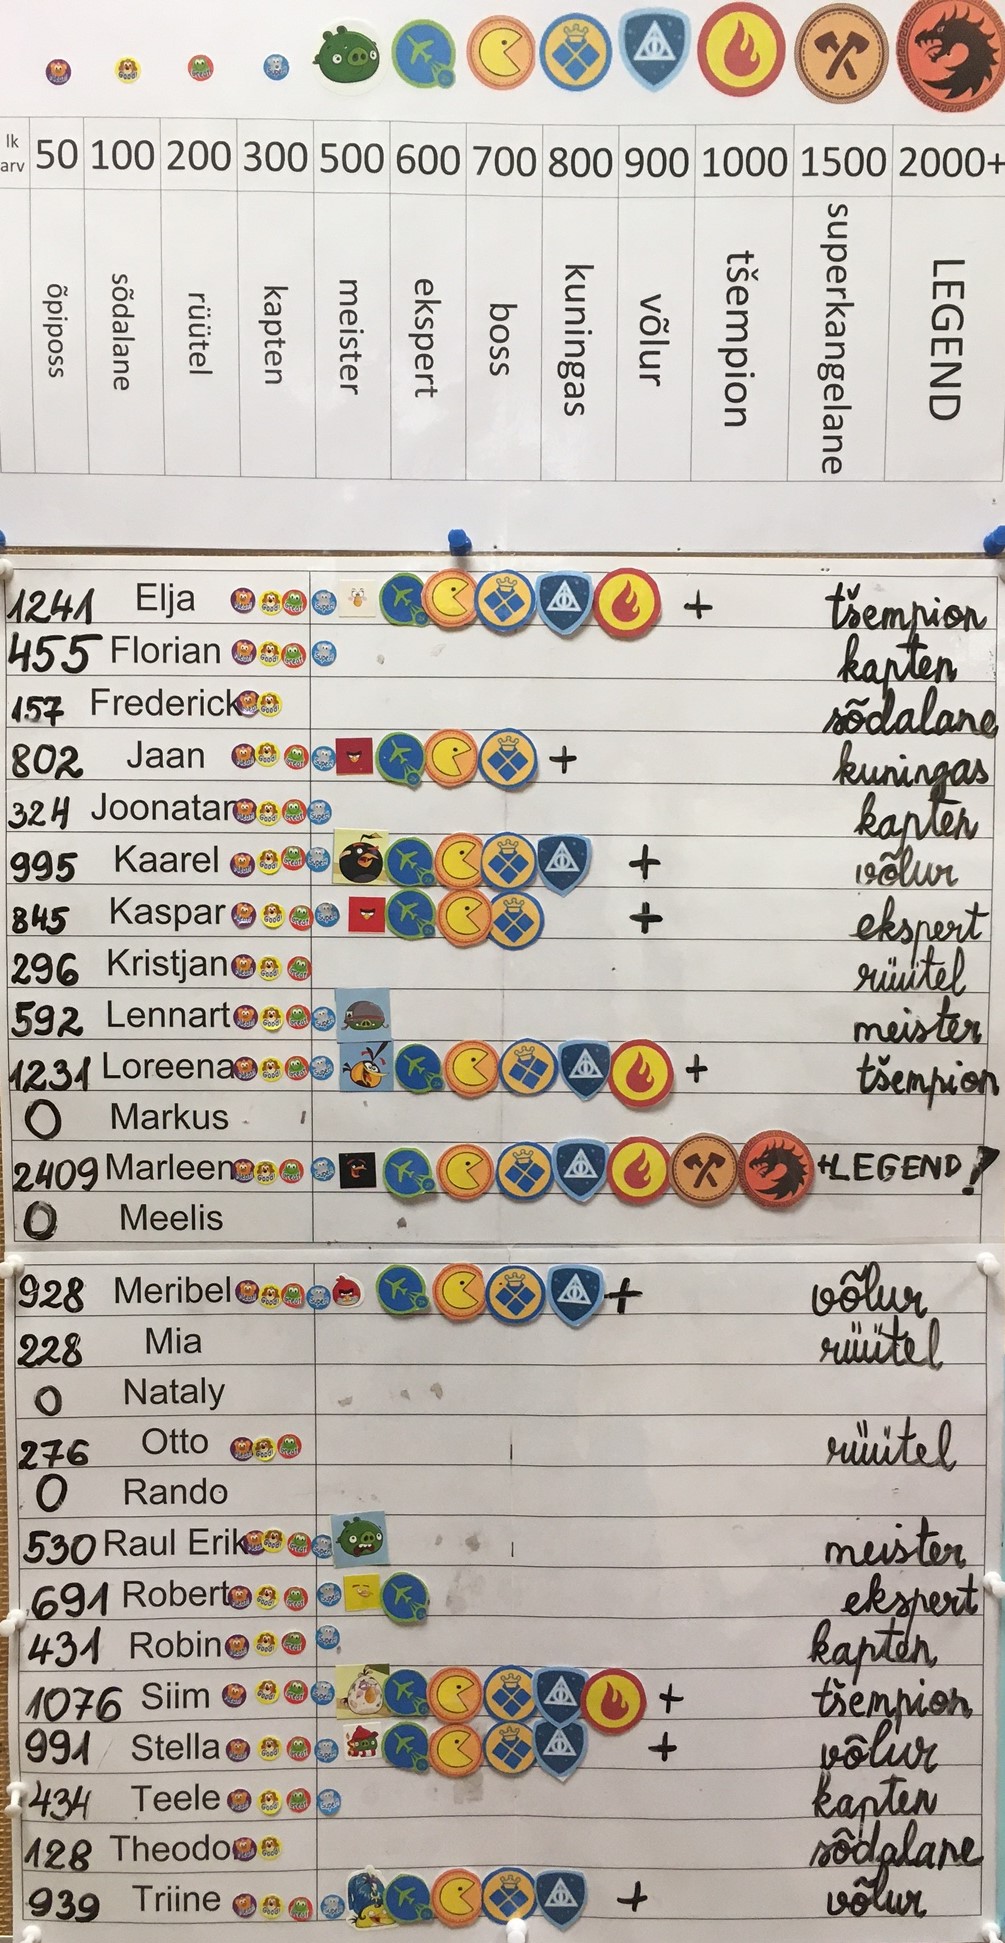 lk arv 50 100 200 300 500 600 700 800 900 1000 1500 2000+
õpiposs sõdalane rüütel kapten meister ekspert boss kuningas võlur tšempion superkangelane LEGEND
1241 Elja + tšempion
455 Florian kapten
157 Frederick sõdalane
802 Jaan + kuningas
324 Joonatan kapten
995 Kaarel + võlur
845 Kaspar + ekspert
296 Kristjan rüütel
592 Lennart meister
1231 Loreena + tšempion
0 Markus
2409 Marleen +LEGEND!
0 Meelis
928 Meribel + võlur
228 Mia rüütel
0 Nataly
276 Otto rüütel
0 Rando
530 Raul Erik meister
691 Robert ekspert
431 Robin kapten
1076 Siim + tšempion
991 Stella + võlur
434 Teele kapten
128 Theodo sõdalane
939 Triine + võlur